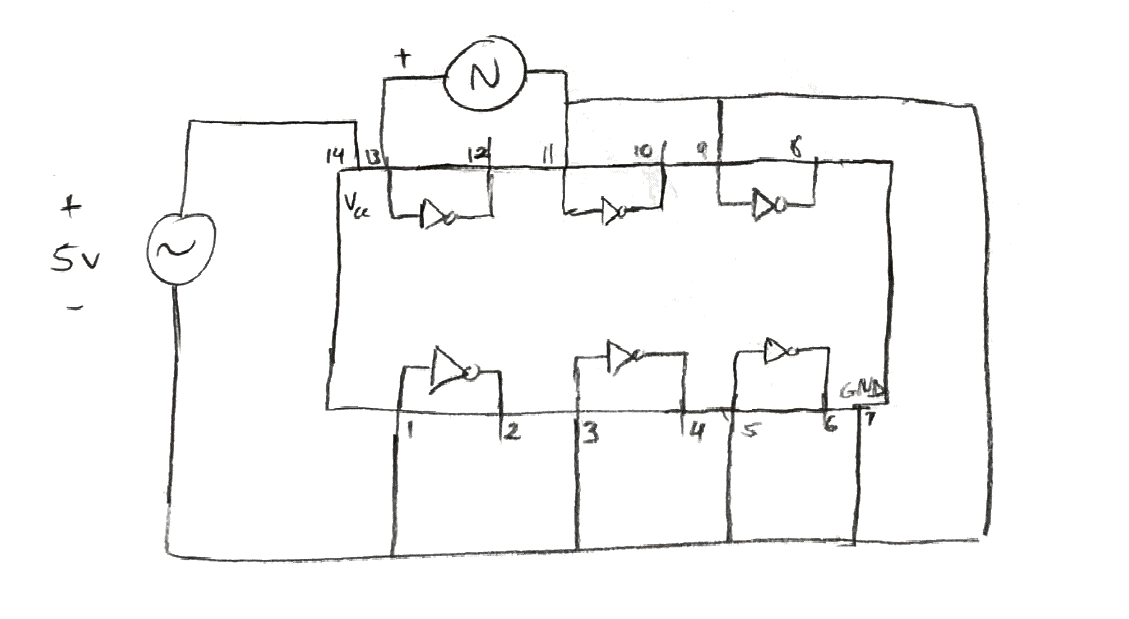 +
N
14 13 12 11 10 9 8
Vcc
+
5v
-
~
GND
1 2 3 4 5 6 7